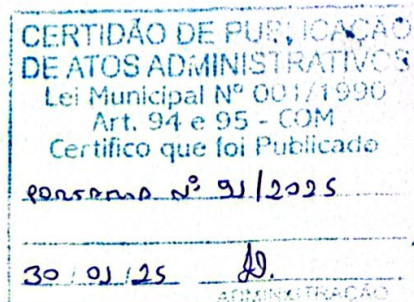 CERTIDÃO DE PUBLICAÇÃO
DE ATOS ADMINISTRATIVOS
Lei Municipal Nº 001/1990
Art. 94 e 95 - COM
Certifico que foi Publicado
PORTARIA Nº 91/2025
30/01/25
ADMINISTRAÇÃO